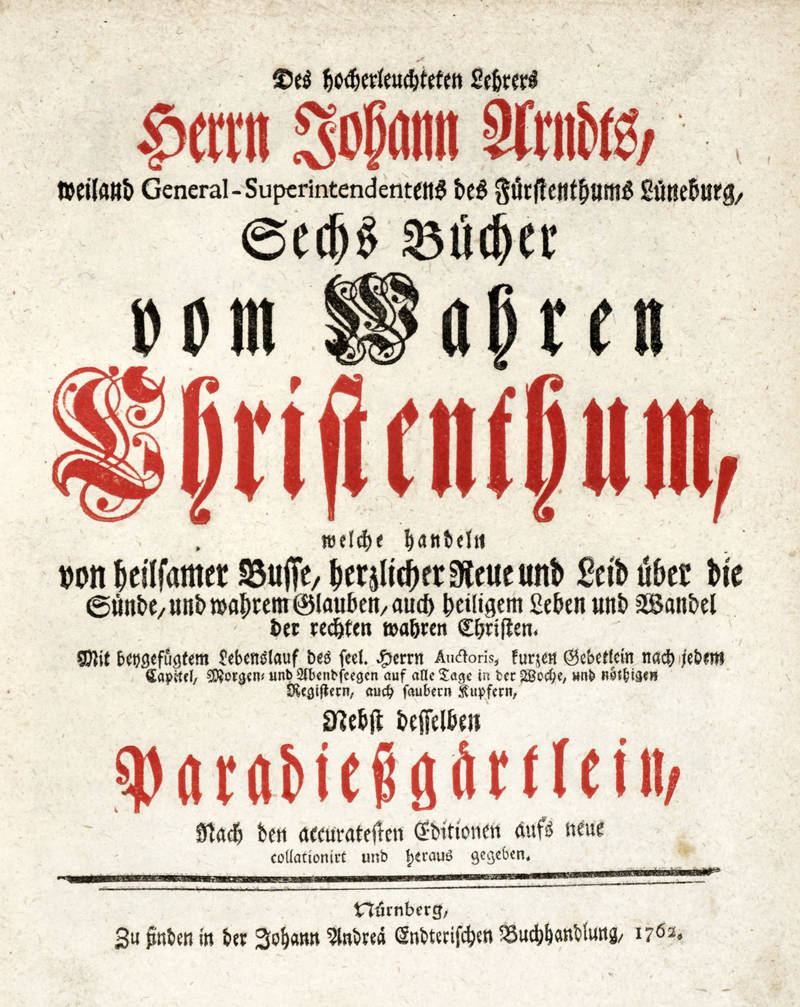 Des hocherleuchteten Lehrers
Herrn Johann Arndts,
weiland General-Superintendentens des Fürstenthums Lüneburg,
Sechs Bücher
vom Wahren
Christenthum,
welche handeln
von heilsamer Busse, herzlicher Reue und Leid über die
Sünde, und wahrem Glauben, auch heiligem Leben und Wandel
der rechten wahren Christen.
Mit beygefügtem Lebenslauf des seel. Herrn Auctoris, kurzen Gebetlein nach jedem
Capitel, Morgen- und Abendseegen auf alle Tage in der Woche, und nöthigen
Registern, auch saubern Kupfern,
Nebst desselben
Paradießgärtlein,
Nach den accuratesten Editionen aufs neue
collationirt und heraus gegeben.
Nürnberg,
Zu finden in der Johann Andreä Endterischen Buchhandlung, 1762.